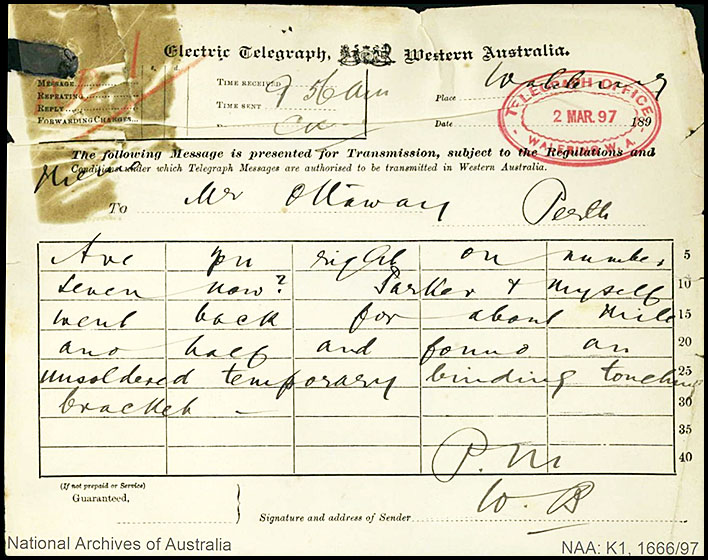 Electric Telegraph, Western Australia.
MESSAGE
REPEATING
REPLY
FORWARDING CHARGES...
£ s. d.
TIME RECEIVED
TIME SENT 9 56 am
Place
Date 189
TELEGRAPH OFFICE
2 MAR. 97
W.A.
The following Message is presented for Transmission, subject to the Regulations and
Conditions under which Telegraph Messages are authorised to be transmitted in Western Australia.
To Mr Ottaway Perth
Are yu right on number 5
seven now? Parker & Myself 10
went back for about Mile 15
and half and found an 20
unsoldered temporary binding touching 25
bracket — 30
35
40
P. M
W. B
(If not prepaid or Service)
Guaranteed,
Signature and address of Sender
National Archives of Australia
NAA: K1, 1666/97